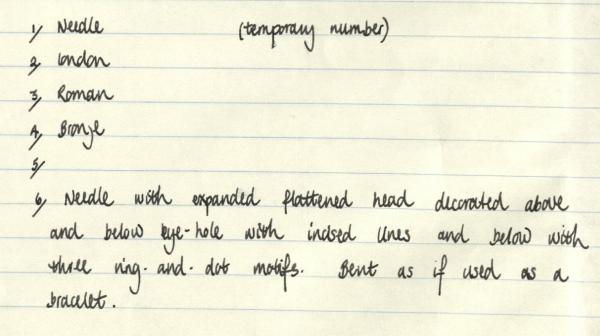 1, Needle (temporary number)
2, London
3, Roman
4, Bronze
5,
6, Needle with expanded flattened head decorated above
and below eye-hole with incised lines and below with
three ring-and-dot motifs. Bent as if used as a
bracelet.